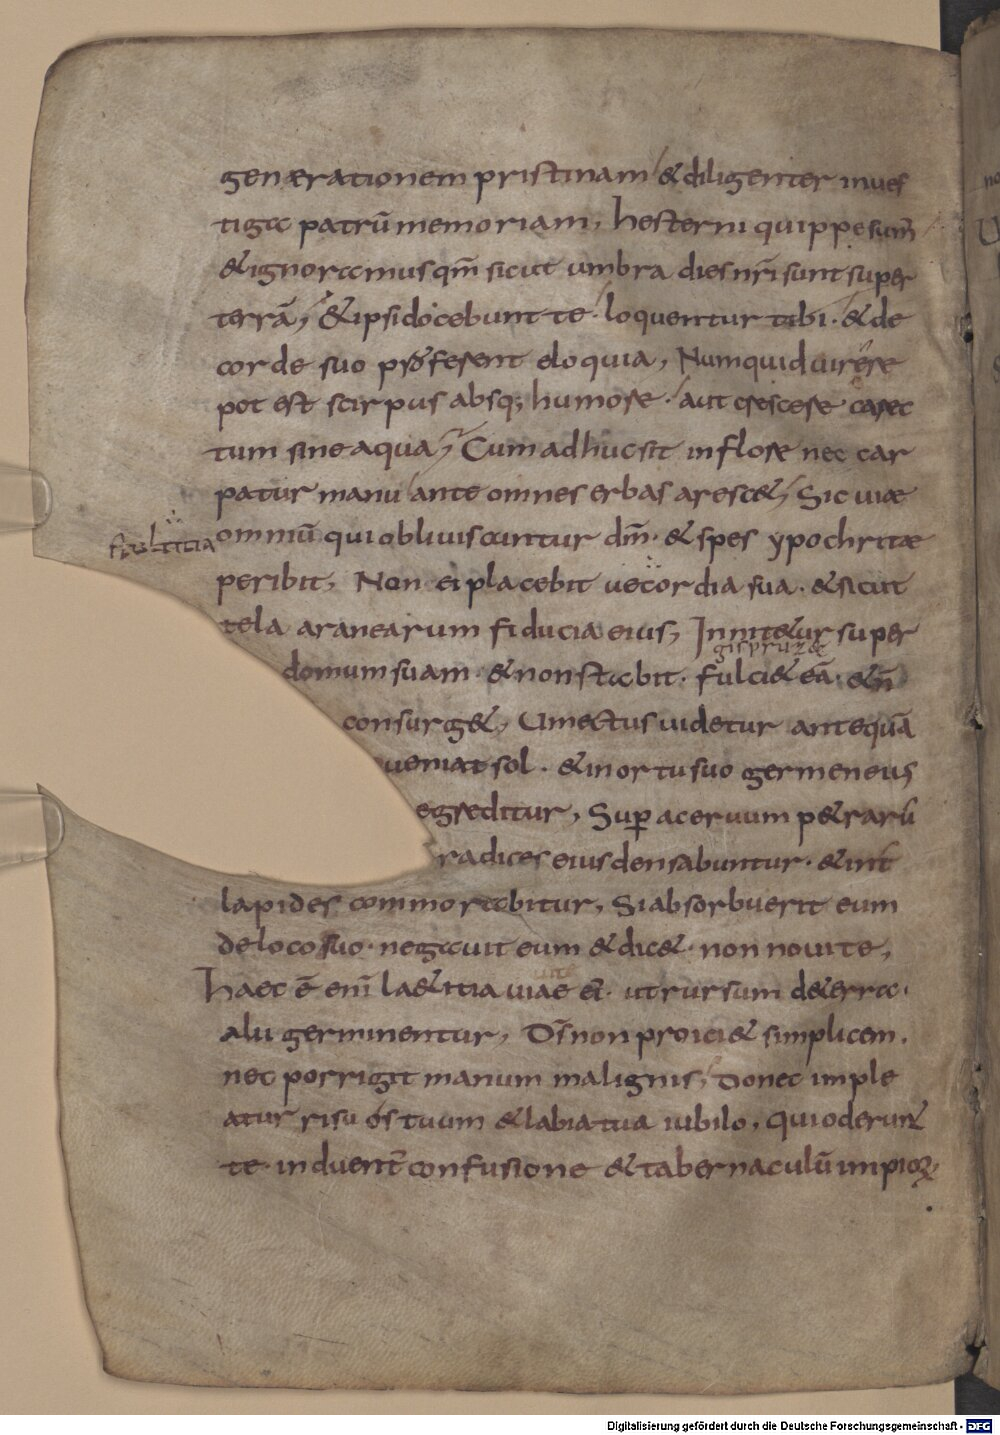 generationem pristinam & diligenter inues
tiga patrū memoriam, hesterni quippe sum̄
& ignoramus qm̄ sicut umbra dies nr̄i sunt super
terrā, & ipsi docebunt te· loquentur tibi· & de
corde suo proferent eloquia, Numquid uirere
potest scirpus absq; humore· aut crescere carec
tum sine aqua, Cum adhuc sit in flore nec car
patur manu ante omnes erbas aresc&, Sic uiae
omniū qui obliuiscuntur dm̄· & spes ypochritae
peribit, Non ei placebit uecordia sua· & sicut
tela aranearum fiducia eius, Innit&ur super
domum suam· & non stabit· fulci& eā· & n̄
consurg&, Umectus uidetur antequā
ueniat sol· & in ortu suo germen eius
egreditur, Sup aceruum p&rarū
radices eius densabuntur· & int̄
lapides commorabitur, Si absorbuerit eum
de loco suo· negauit eum & dic&· non noui te,
Haec ē eni̅ la&itia uiae ei· ut rursum de terra·
alii germinentur, Ds̄ non proici& simplicem·
nec porrigit manum malignis, Donec imple
atur risu os tuum & labia tua iubilo, Qui oderunt
te· induent̄ confusione & tabernaculū impioꝝ,
Digitalisierung gefördert durch die Deutsche Forschungsgemeinschaft - DFG